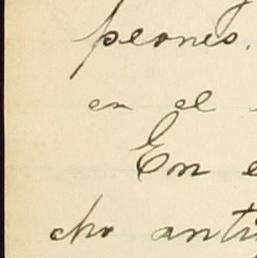 peones.
en el
En e
cho anti